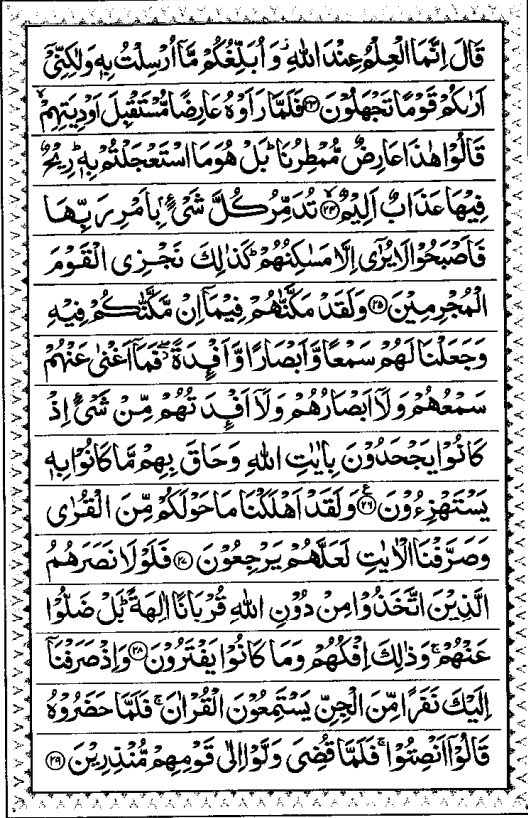 قَالَ اِنَّمَا الْعِلْمُ عِنْدَ اللّٰهِ ۖ وَاُبَلِّغُكُمْ مَّاۤ اُرْسِلْتُ بِهٖ وَلٰكِنِّیْۤ
اَرٰىكُمْ قَوْمًا تَجْهَلُوْنَ ﴿۲۳﴾ فَلَمَّا رَاَوْهُ عَارِضًا مُّسْتَقْبِلَ اَوْدِیَتِهِمْ ۙ
قَالُوْا هٰذَا عَارِضٌ مُّمْطِرُنَا ؕ بَلْ هُوَ مَا اسْتَعْجَلْتُمْ بِهٖ ؕ رِیْحٌ
فِیْهَا عَذَابٌ اَلِیْمٌ ۙ﴿۲۴﴾ تُدَمِّرُ كُلَّ شَیْءٍۭ بِاَمْرِ رَبِّهَا
فَاَصْبَحُوْا لَا یُرٰۤی اِلَّا مَسٰكِنُهُمْ ؕ كَذٰلِكَ نَجْزِی الْقَوْمَ
الْمُجْرِمِیْنَ ﴿۲۵﴾ وَلَقَدْ مَكَّنّٰهُمْ فِیْمَاۤ اِنْ مَّكَّنّٰكُمْ فِیْهِ
وَجَعَلْنَا لَهُمْ سَمْعًا وَّاَبْصَارًا وَّاَفْـِٕدَةً ۖ فَمَاۤ اَغْنٰی عَنْهُمْ
سَمْعُهُمْ وَلَاۤ اَبْصَارُهُمْ وَلَاۤ اَفْـِٕدَتُهُمْ مِّنْ شَیْءٍ اِذْ
كَانُوْا یَجْحَدُوْنَ بِاٰیٰتِ اللّٰهِ وَحَاقَ بِهِمْ مَّا كَانُوْا بِهٖ
یَسْتَهْزِءُوْنَ ﴿۲۶﴾ع وَلَقَدْ اَهْلَكْنَا مَا حَوْلَكُمْ مِّنَ الْقُرٰی
وَصَرَّفْنَا الْاٰیٰتِ لَعَلَّهُمْ یَرْجِعُوْنَ ﴿۲۷﴾ فَلَوْلَا نَصَرَهُمُ
الَّذِیْنَ اتَّخَذُوْا مِنْ دُوْنِ اللّٰهِ قُرْبَانًا اٰلِهَةً ؕ بَلْ ضَلُّوْا
عَنْهُمْ ۚ وَذٰلِكَ اِفْكُهُمْ وَمَا كَانُوْا یَفْتَرُوْنَ ﴿۲۸﴾ وَاِذْ صَرَفْنَاۤ
اِلَیْكَ نَفَرًا مِّنَ الْجِنِّ یَسْتَمِعُوْنَ الْقُرْاٰنَ ۚ فَلَمَّا حَضَرُوْهُ
قَالُوْۤا اَنْصِتُوْا ۚ فَلَمَّا قُضِیَ وَلَّوْا اِلٰی قَوْمِهِمْ مُّنْذِرِیْنَ ﴿۲۹﴾